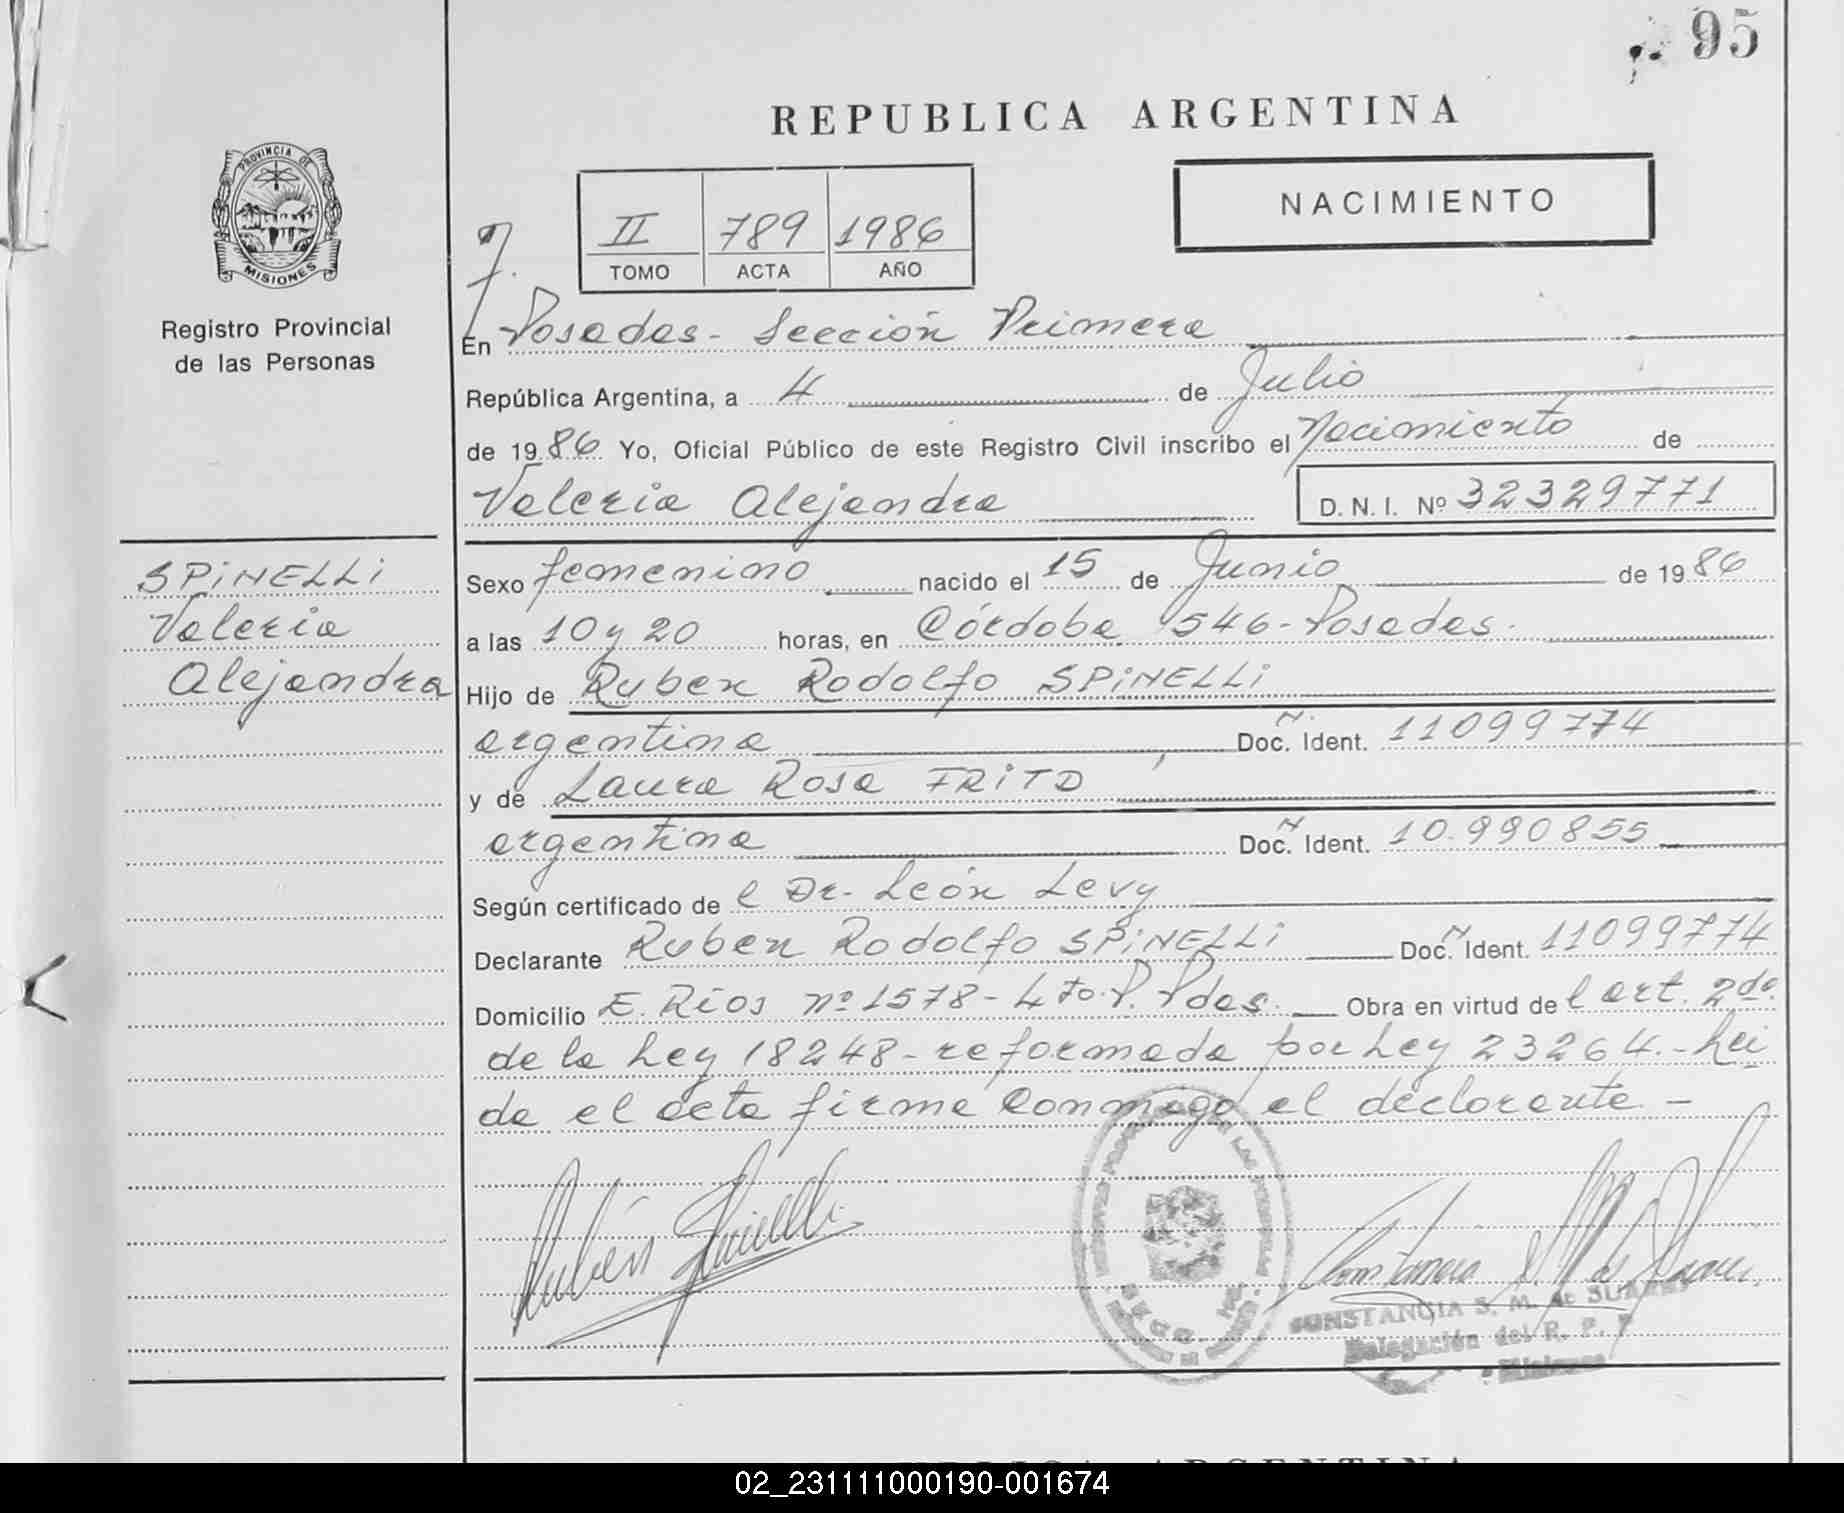 95
REPUBLICA ARGENTINA
PROVINCIA DE
MISIONES
Registro Provincial
de las Personas
II 789 1986
TOMO ACTA AÑO
NACIMIENTO
En Posadas - Sección Primera
República Argentina, a 4 de Julio
de 1986 Yo, Oficial Público de este Registro Civil inscribo el Nacimiento de
Valeria Alejandra D.N.I. Nº 32329771
SPINELLI
Valeria
Alejandra
Sexo femenino nacido el 15 de Junio de 1986
a las 10 y 20 horas, en Córdoba 1546 - Posadas.
Hijo de Ruben Rodolfo SPINELLI
argentina Doc. Ident. 11099774
y de Laura Rosa
argentina Doc. Ident. 10.990855
Según certificado de l Dr. León Levy
Declarante Ruben Rodolfo SPINELLI Doc. Ident. 11099774
Domicilio E. Ríos nº 1578 - 4to. P. Pdas. Obra en virtud de l art. 2do.
de la Ley 18248 - reformada por Ley 23264. - Leí
da el acta firma conmigo el declarante -
Rubén Spinelli
CONSTANCIA S. M. de SUAREZ
Delegación del R. P. P
Misiones
02_231111000190-001674